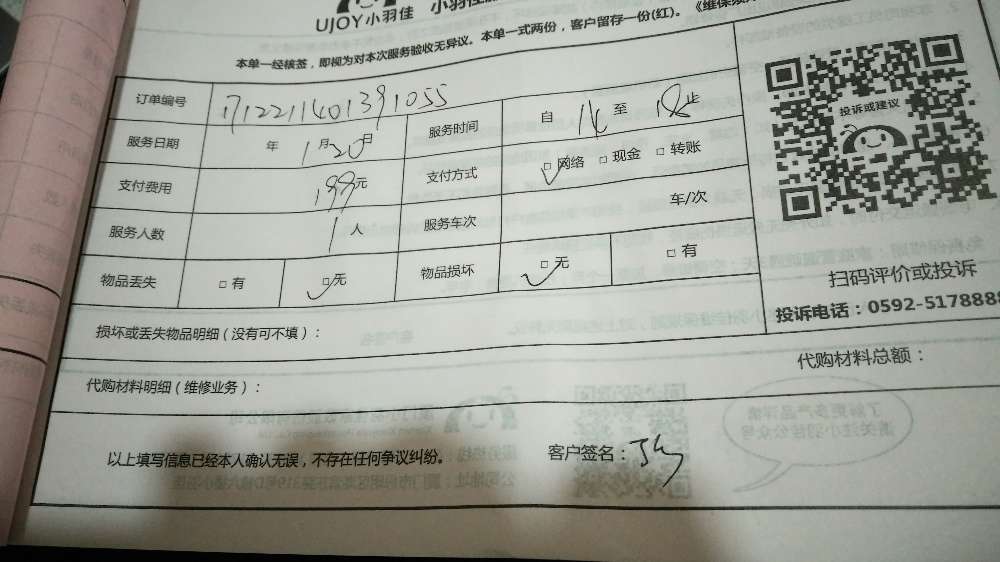 UJOY小羽佳
本单一经核签，即视为对本次服务验收无异议。本单一式两份，客户留存一份(红)。
订单编号 1712211401391055
投诉或建议
服务日期 年 1月20日 服务时间 自 14 至 18 止
支付费用 199元 支付方式 □网络 □现金 □转账
服务人数 1人 服务车次 车/次
物品丢失 □有 □无 物品损坏 □无 □有
扫码评价或投诉
投诉电话：0592-5178888
损坏或丢失物品明细(没有可不填)：
代购材料明细(维修业务)： 代购材料总额：
以上填写信息已经本人确认无误，不存在任何争议纠纷。 客户签名：